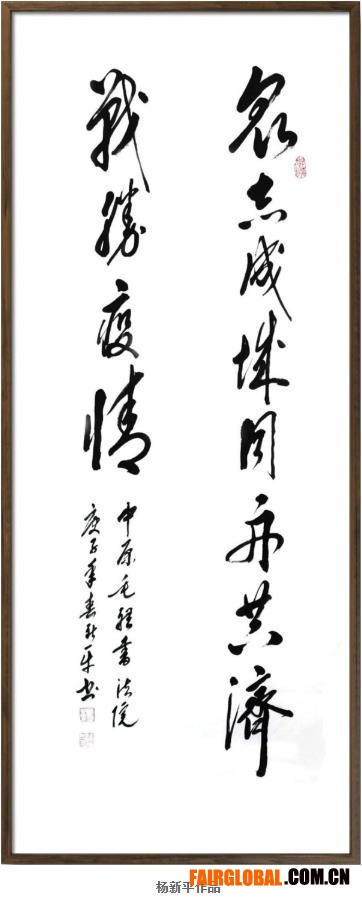 眾志成城同舟共濟
戰勝疫情
中原毛體書法院
庚子年春新平書
杨新平作品
FAIRGLOBAL.COM.CN